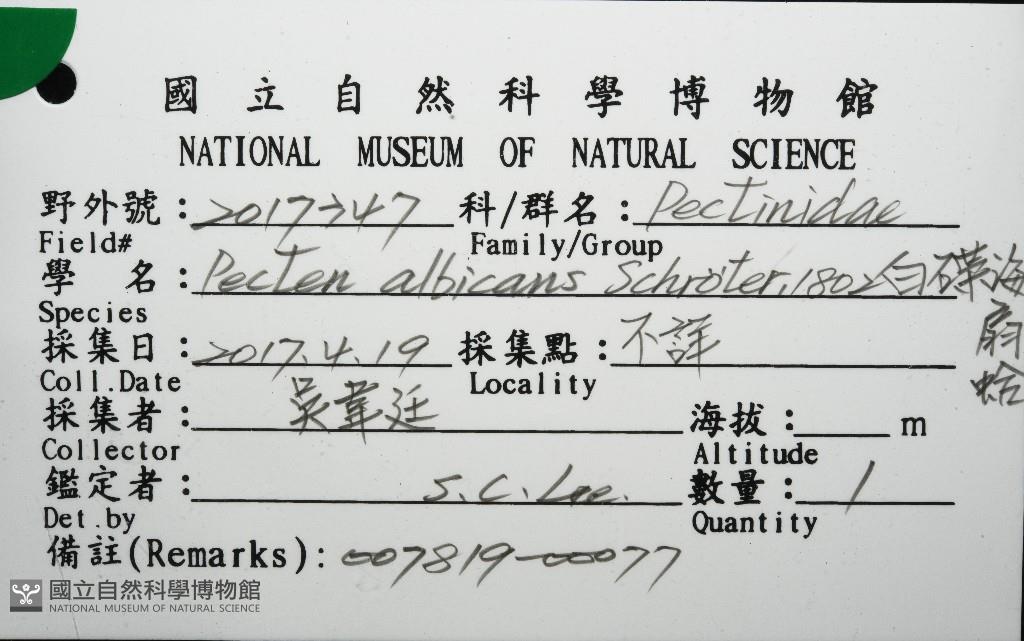 國立自然科學博物館
NATIONAL MUSEUM OF NATURAL SCIENCE
野外號：2017-247 科/群名：Pectinidae
Field# Family/Group
學名：Pecten albicans Schröter, 1802 白碟海扇蛤
Species
採集日：2017.4.19 採集點：不詳
Coll.Date Locality
採集者：吳葦廷 海拔：m
Collector Altitude
鑑定者：S.C. Lee. 數量：1
Det.by Quantity
備註(Remarks)：007819-00077
國立自然科學博物館
NATIONAL MUSEUM OF NATURAL SCIENCE